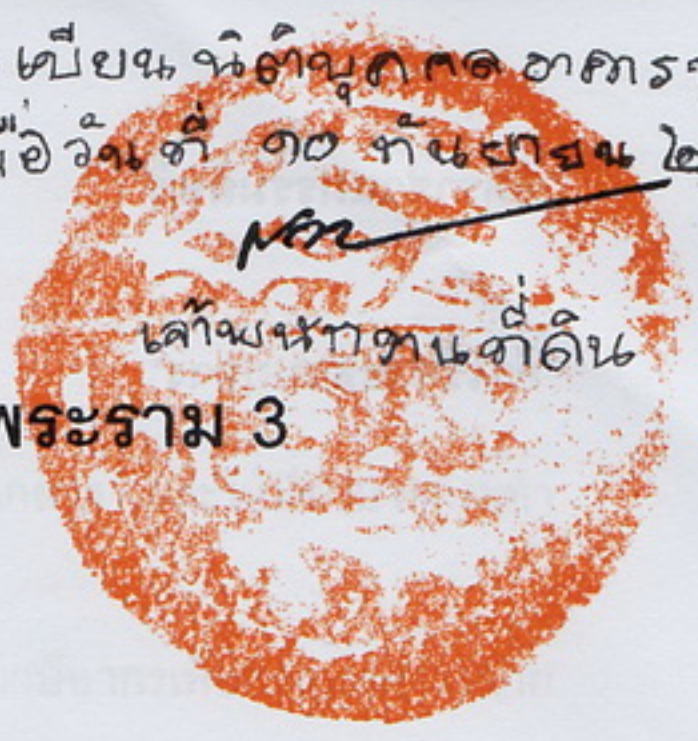 เบียน นิติบุคคล อาคาร
วันที่ ๑๐ กันยายน
เจ้าพนักงานที่ดิน
พระราม 3